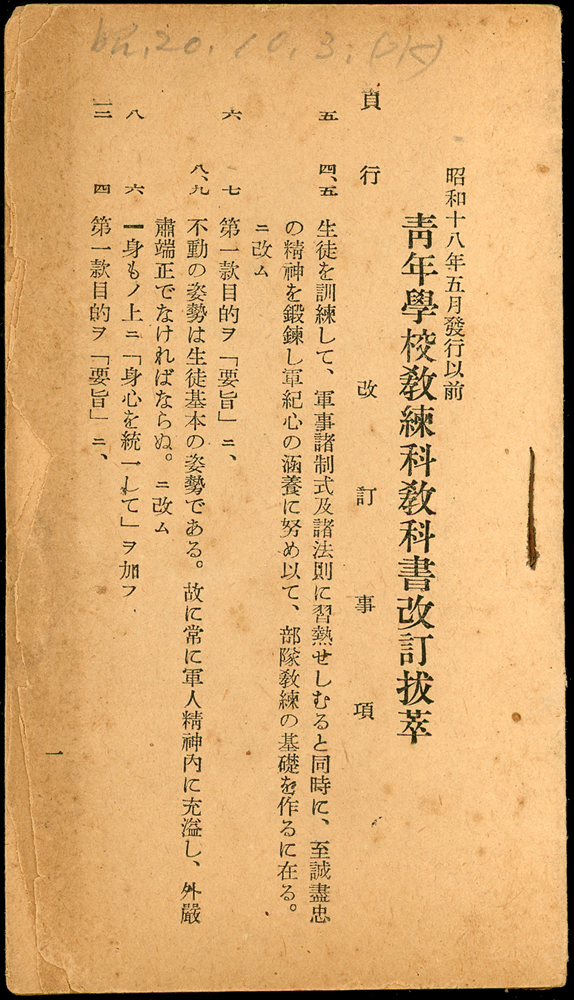 昭和十八年五月發行以前
靑年學校敎練科敎科書改訂拔萃
頁 行 改訂事項
五 四、五 生徒を訓練して、軍事諸制式及諸法則に習熟せしむると同時に、至誠盡忠
の精神を鍛鍊し軍紀心の涵養に努め以て、部隊敎練の基礎を作るに在る。
ニ改ム
六 七 第一款目的ヲ「要旨」ニ、
八、九 不動の姿勢は生徒基本の姿勢である。故に常に軍人精神內に充溢し、外嚴
肅端正でなければならぬ。ニ改ム
八 六 一身もノ上ニ「身心を統一して」ヲ加フ
一三 四 第一款目的ヲ「要旨」ニ、
一